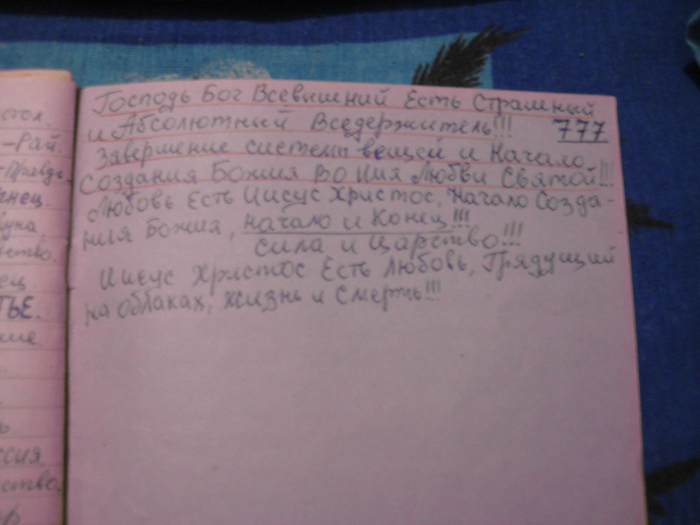 стол.
-Рай.
-Правда.
нец.
ство.
ец
ТЬЕ.
ние
ь.
ссия.
ство.
Господь Бог Всевышний Есть Страшный
и Абсолютный Вседержитель!!! 777
Завершение системы вещей и Начало
Создания Божия Во Имя Любви Святой!!!
Любовь Есть Иисус Христос, Начало Созда-
ния Божия, начало и Конец!!!
сила и Царство!!!
Иисус Христос Есть Любовь, Грядущий
на облаках, жизнь и Смерть!!!